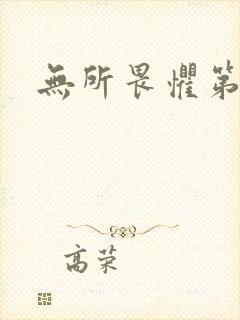 無所畏懼第
高荣